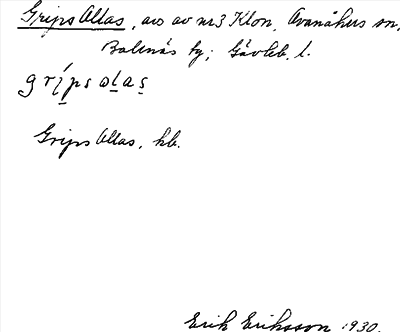 Grips Ollas, avs av nr 3 Klon, Ovanåkers sn,
Bollnäs tg; Gävleb. l.
grípsolas
Grips Ollas, hb.
Erik Eriksson 1930.